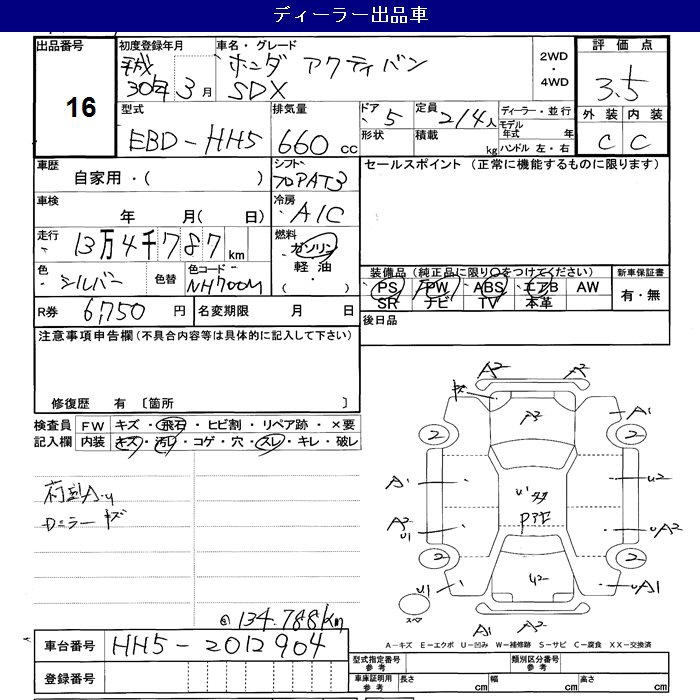 ディーラー出品車
出品番号
16
初度登録年月
平成
30年 3月
車名・グレード
ホンダ アクティバン
SDX
2WD
・
4WD
評価点
3.5
外装 内装
C C
型式
EBD-HH5
排気量
660 cc
ドア
・5
形状
定員
2/4人
積載
kg
ディーラー・並行
モデル
年式 年
ハンドル 左・右
車歴
自家用・( )
シフト
フロアAT3
セールスポイント (正常に機能するものに限ります)
車検
年 月( 日)
冷房
・A/C
走行
・13万4千787km
燃料
ガソリン
軽油
・( )
色
・シルバー
色替
色コード
・NH700M
装備品 (純正品に限り○をつけてください)
PS PW ABS エアB AW
SR ナビ TV 本革
新車保証書
有・無
R券 6,750 円
名変期限 月 日
後日品
注意事項申告欄 (不具合内容等は具体的に記入して下さい)
修復歴 有 〔箇所 〕
検査員
記入欄
FW キズ・飛石・ヒビ割・リペア跡・×要
内装 キズ・汚レ・コゲ・穴・スレ・キレ・破レ
ドミラーキズ
◎ 134.788km
A2 A2
キズ
A2
A1
2 2
A1
U1
U2
A2
U1
UA2
2 2
U1
U2
UA1
スペア
A1 A2
A-キズ E-エクボ U-凹み W-補修跡 S-サビ C-腐食 XX-交換済
車台番号 HH5-2012904
登録番号
型式指定番号
参考
類別区分番号
参考
車庫証明用
参考
長さ cm
幅 cm
高さ cm